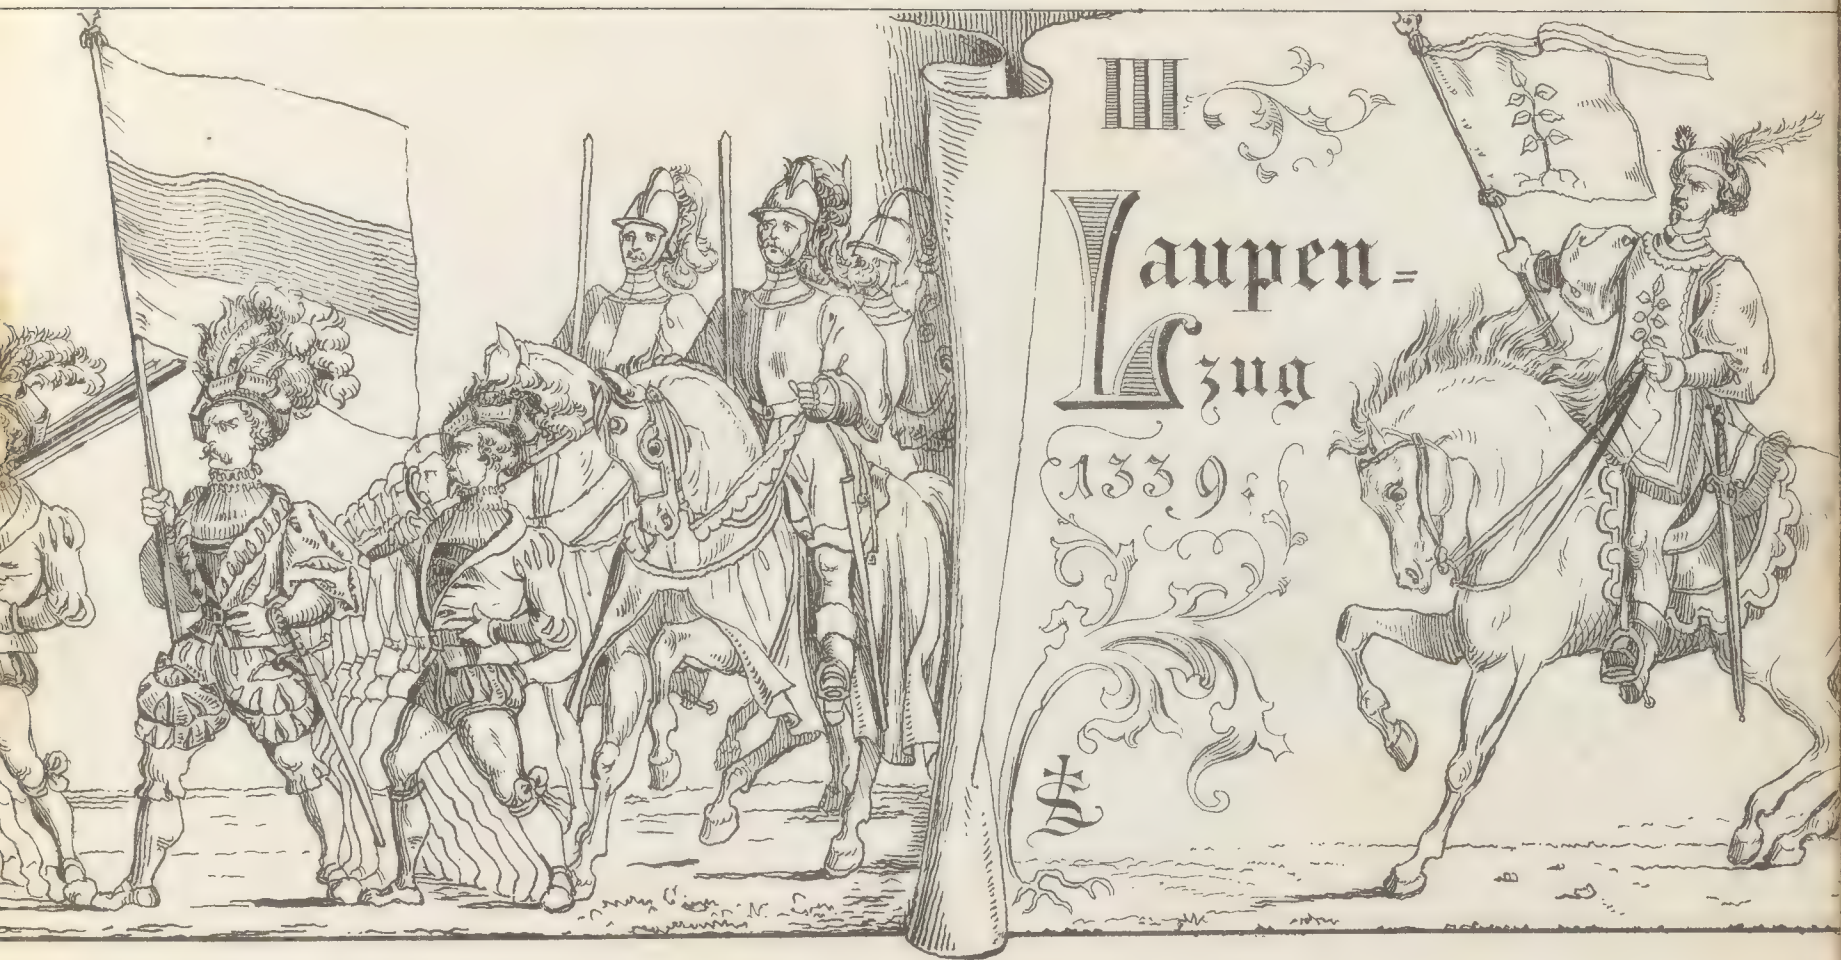 III
Laupen=
zug
1339: